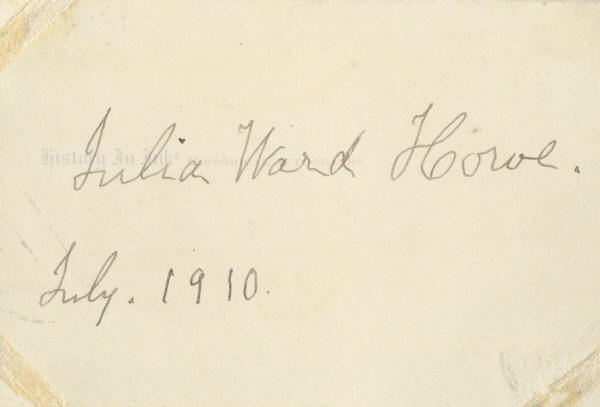 Julia Ward Howe.
History In Ink® HISTORICAL AUTOGRAPHS
July. 1910.